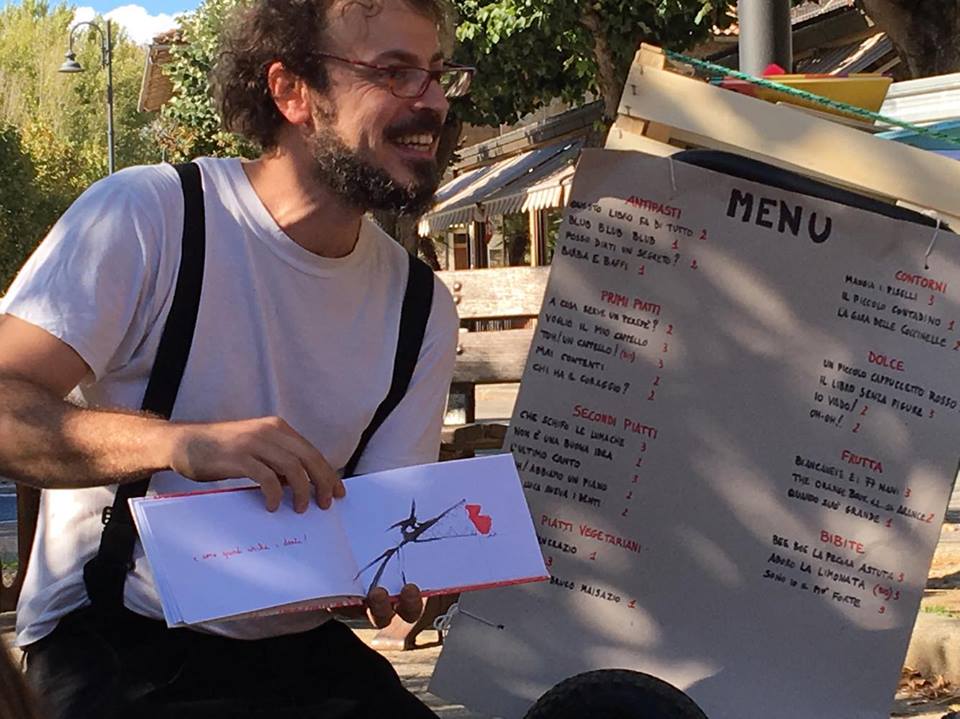 MENU
ANTIPASTI
QUESTO LIBRO FA DI TUTTO 2
BLUB BLUB BLUB 1
POSSO DIRTI UN SEGRETO? 2
BARBA E BAFFI 1
PRIMI PIATTI
A COSA SERVE UN PERCHÉ? 2
VOGLIO IL MIO CAPPELLO 3
TOH! UN CAPPELLO! (BIS) 3
MAI CONTENTI 2
CHI HA IL CORAGGIO? 2
SECONDI PIATTI
CHE SCHIFO LE LUMACHE 3
NON È UNA BUONA IDEA 3
L'ULTIMO CANTO 2
H/ABBIAMO UN PIANO 3
LUCA LAVA I DENTI 2
2
PIATTI VEGETARIANI
1
3
MAISAZIO 1
CONTORNI
MANGIA I PISELLI 3
IL PICCOLO CONTADINO 1
LA GARA DELLE COCCINELLE 2
DOLCE
UN PICCOLO CAPPUCCETTO ROSSO
IL LIBRO SENZA FIGURE 3
IO VADO! 2
OH-OH! 2
FRUTTA
BIANCANEVE E I 77 NANI 3
THE ORANGE BOOK 2
QUANDO SARÒ GRANDE 1
BIBITE
BEE BEE LA PECORA ASTUTA 3
ADORO LA LIMONATA (BIS) 3
SONO IO IL PIÙ FORTE 3